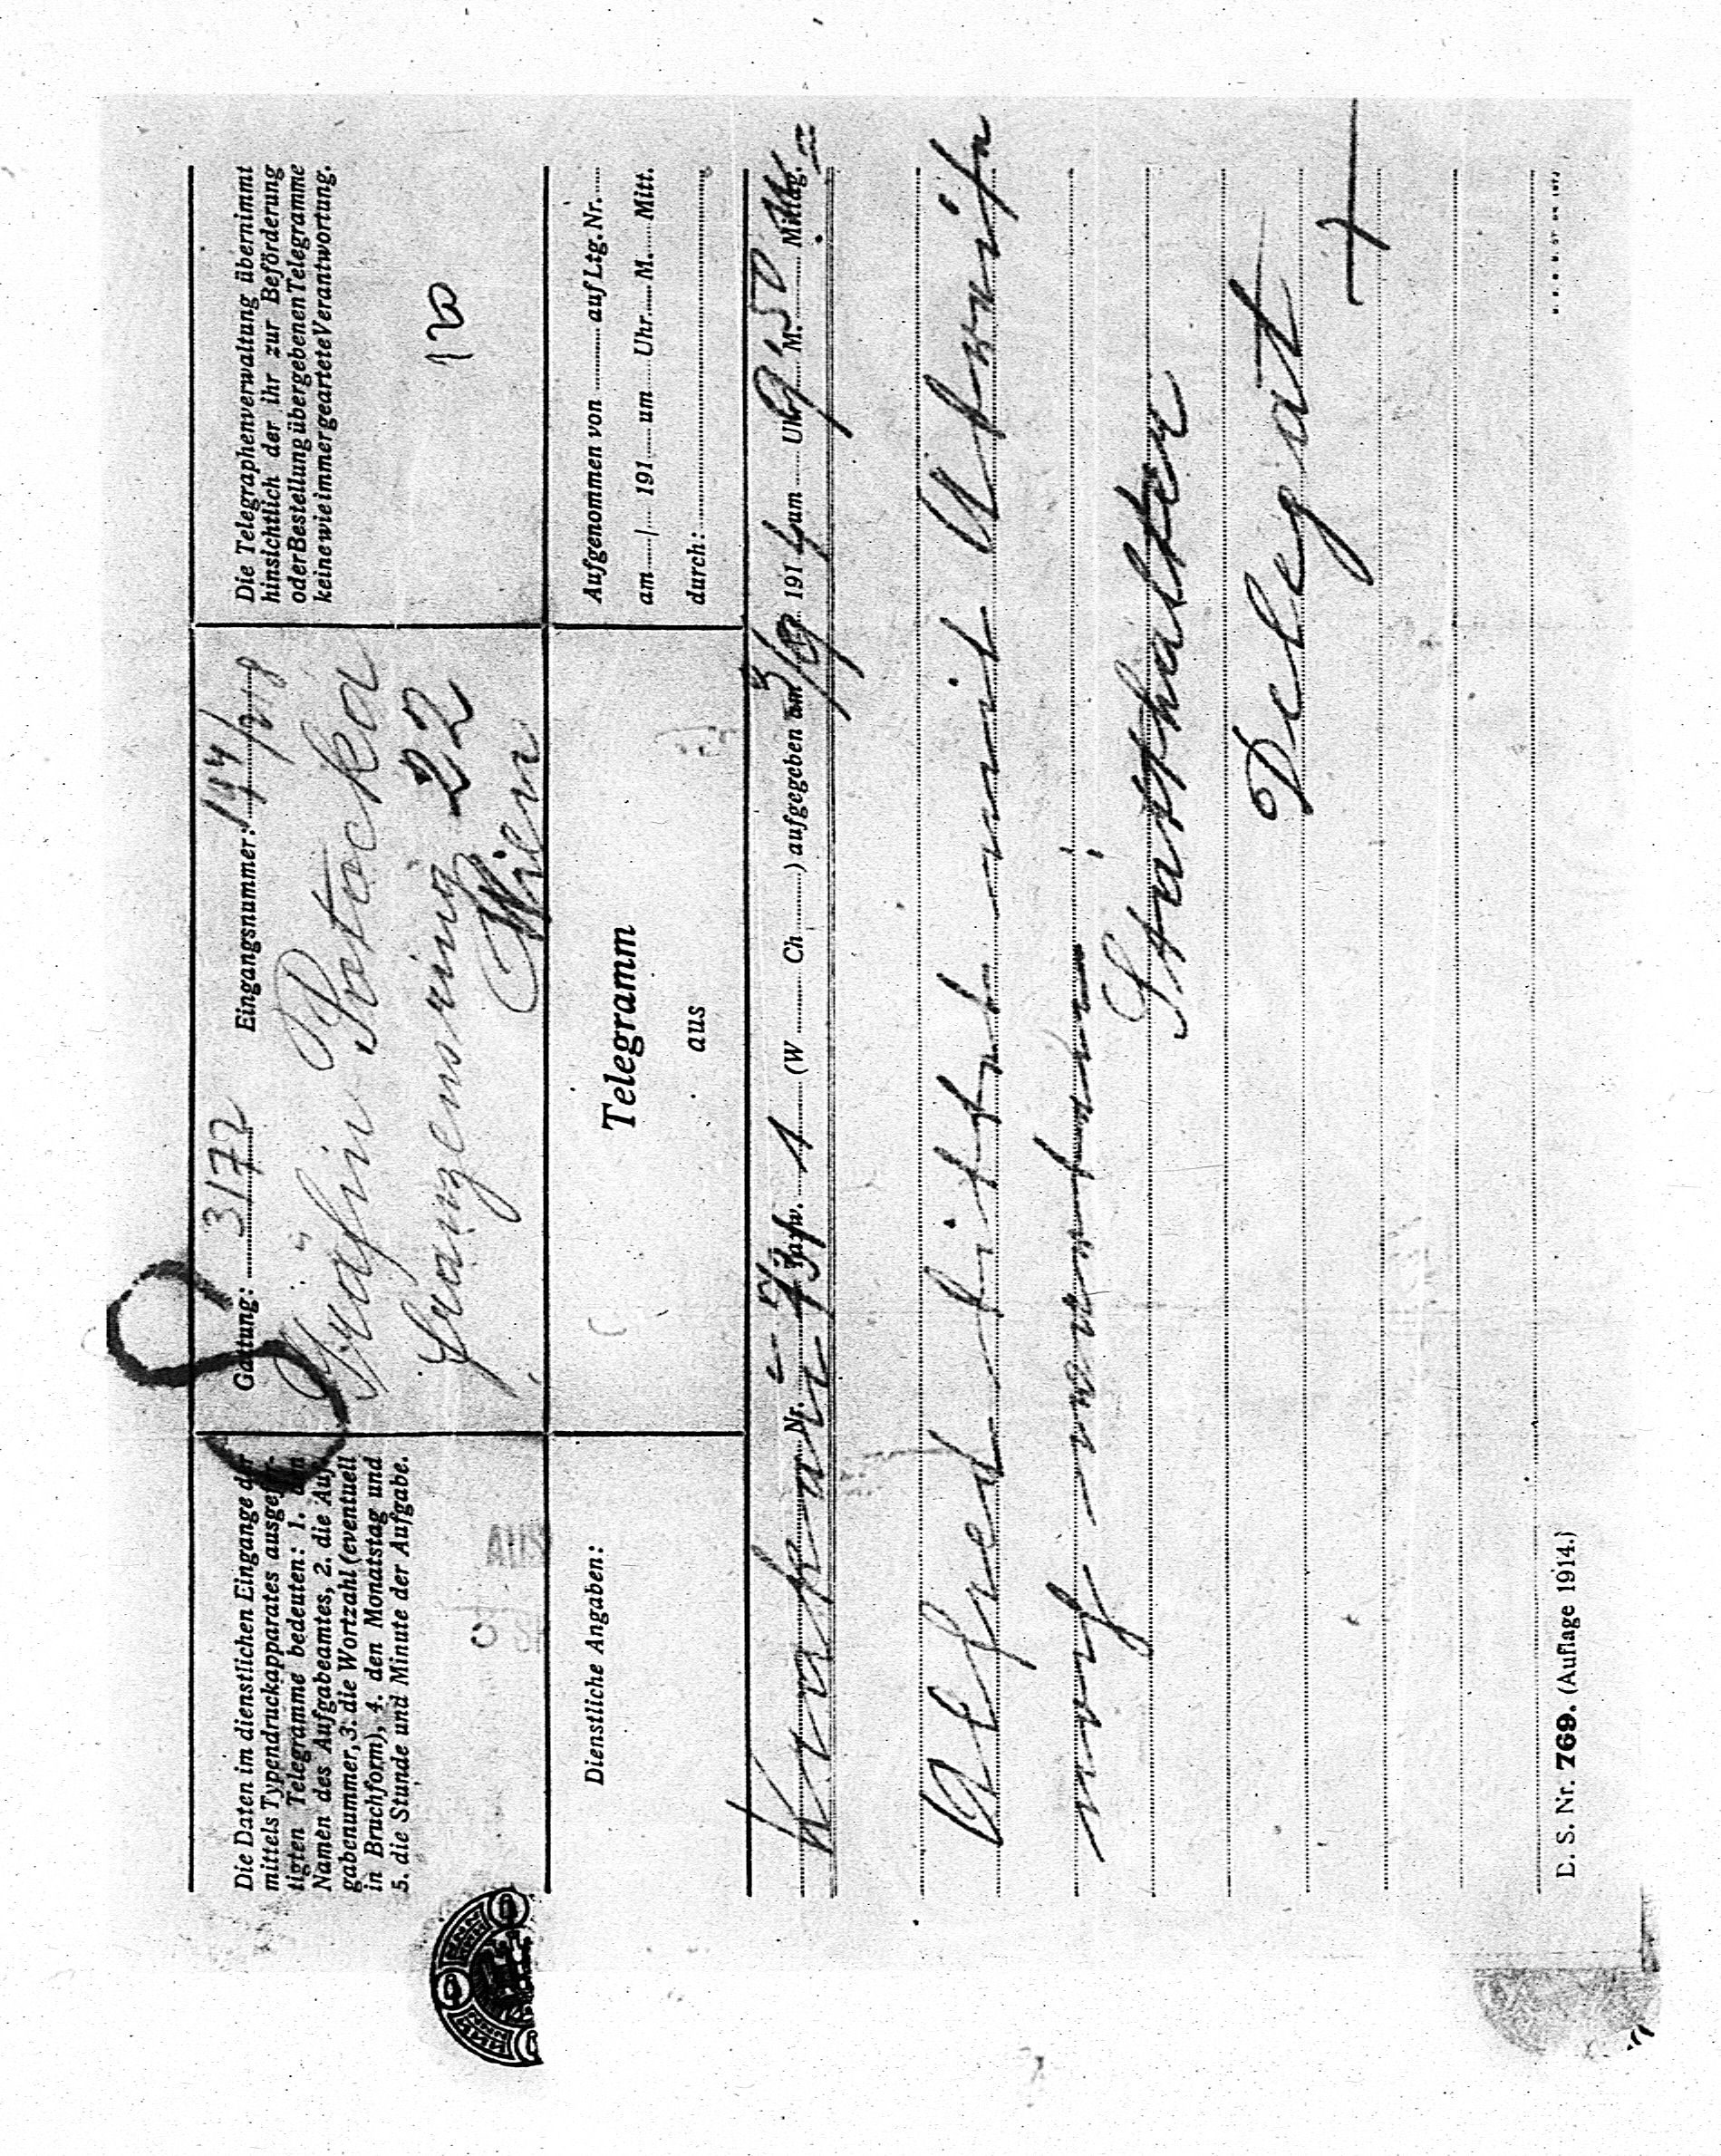 Die Daten im dienstlichen Eingange der
mittels Typendruckapparates ausgefer-
tigten Telegramme bedeuten: 1. den
Namen des Aufgabeamtes, 2. die Auf-
gabenummer, 3. die Wortzahl (eventuell
in Bruchform), 4. den Monatstag und
5. die Stunde und Minute der Aufgabe.
Gattung: 3172 Eingangsnummer: 144/
Gräfin Potocka
Franzensring 22
Wien
Die Telegraphenverwaltung übernimmt
hinsichtlich der ihr zur Beförderung
oder Bestellung übergebenen Telegramme
keine wie immer geartete Verantwortung.
120
Dienstliche Angaben:
Telegramm
aus
Aufgenommen von auf Ltg. Nr.
am / 191 um Uhr M. Mitt.
durch:
Krakau Nr. Taxw. (W Ch ) aufgegeben am 3/9 1914 um Uhr 9 50 M. Mittag.
Alfred
Statthalter
Delegat +
D. S. Nr. 769. (Auflage 1914.)